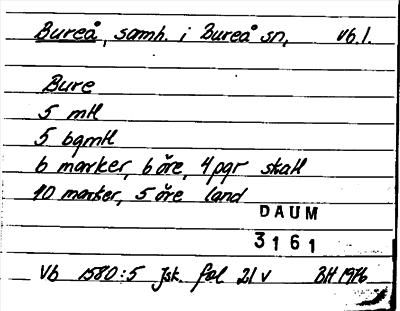 Bureå, samh. i Bureå sn, Vb.l.
Bure
5 mtl
5 bgmtl
6 marker, 6 öre, 4 pgr skatt
10 marker, 5 öre land
DAUM
3161
Vb 1580:5 Jsk. fol 21 v BH 1976